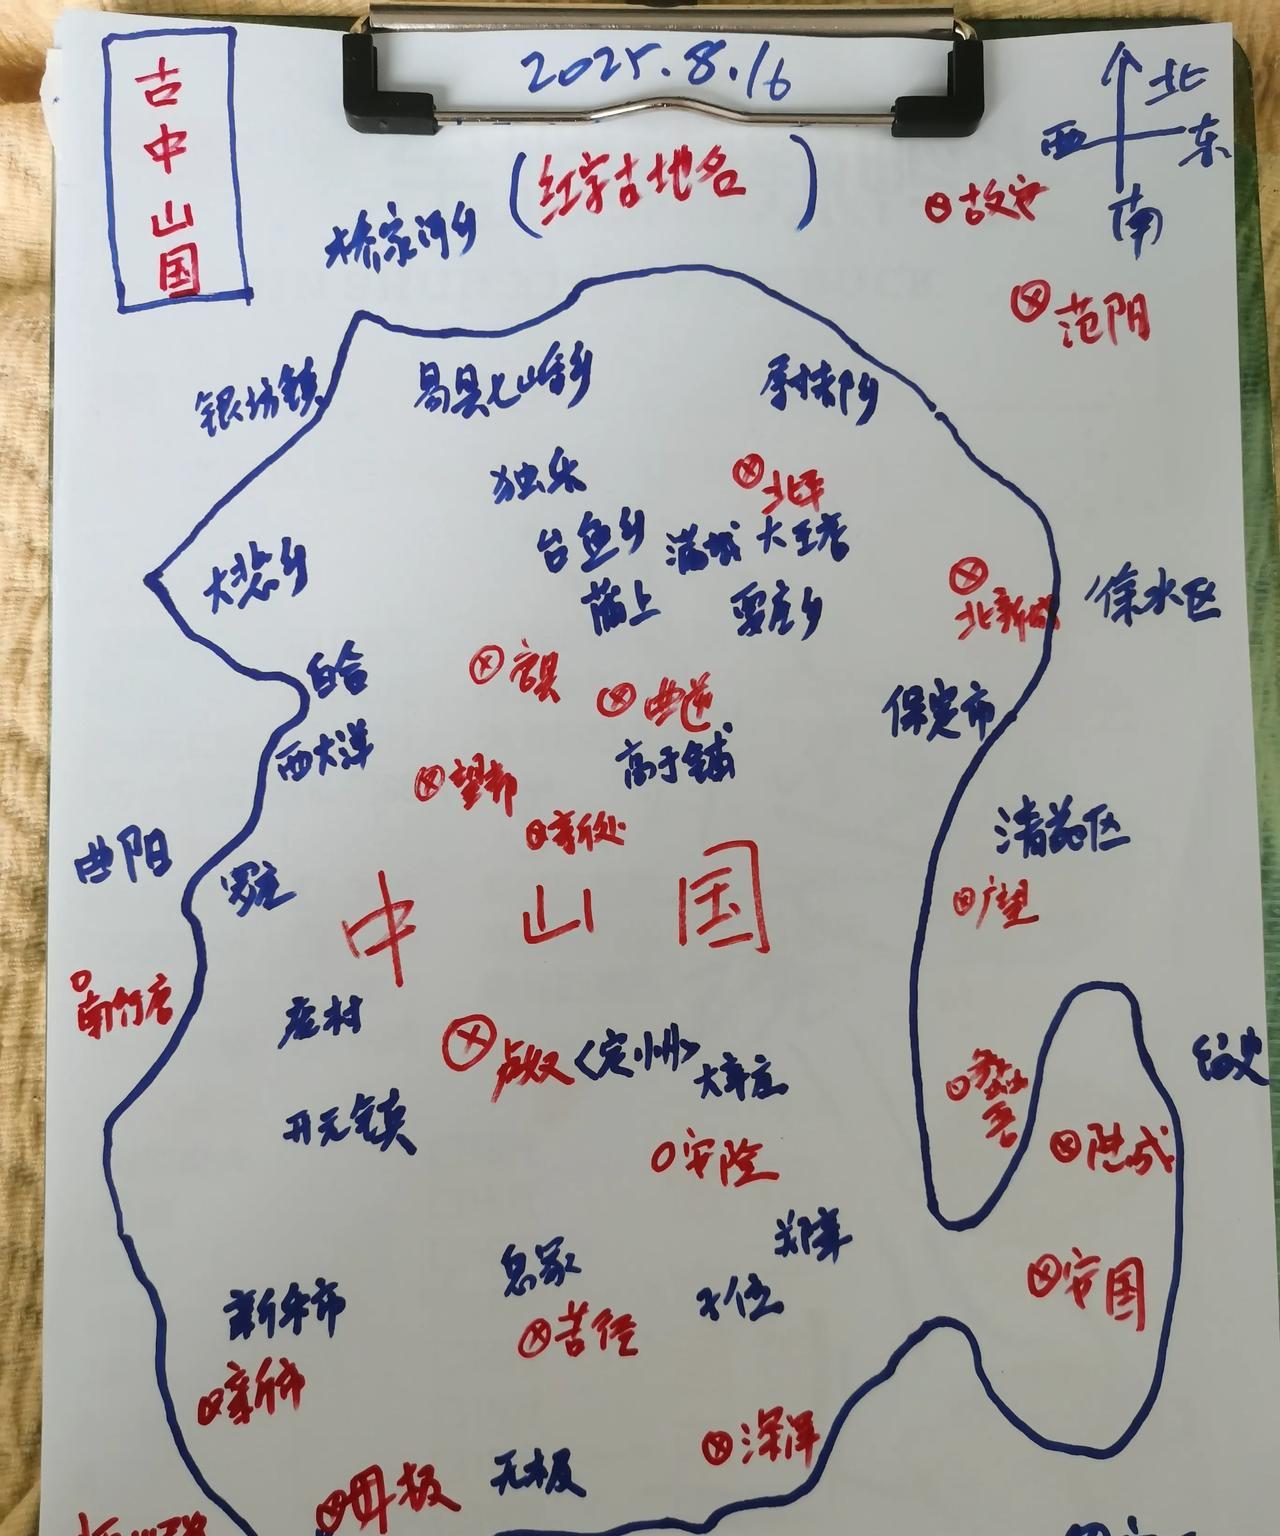 2025.8.16
古中山国
北
西 东
南
(红字古地名)
桥家河乡
故安
范阳
银坊镇
易县七峪乡
独乐
北平
台鱼乡
满城
大王店
大悲乡
蒲上
要庄乡
北新城
徐水区
白合
曲逆
保定市
西大洋
高于铺
望都
清苑区
曲阳
中山国
广望
南竹店
卢奴
<定州>
大辛庄
开元镇
安险
安国
新乐市
息冢
子位
苦陉
新市
深泽
毋极
无极